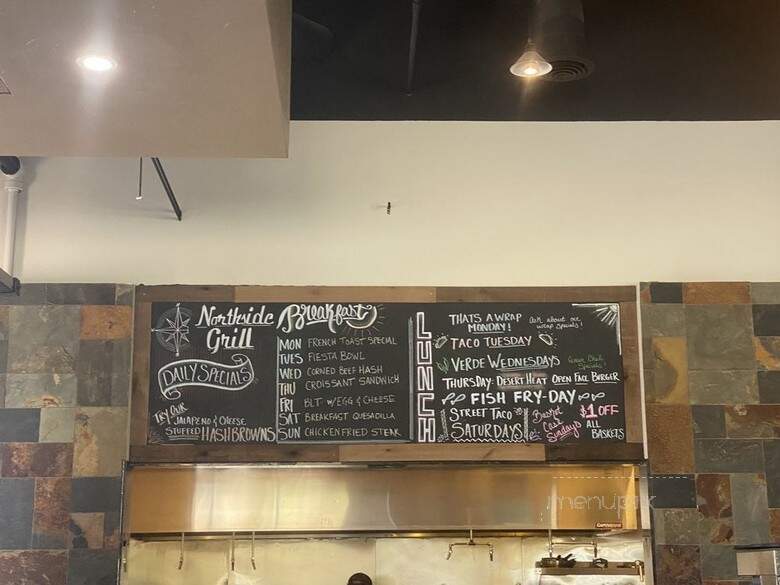 Northside
Grill
DAILY SPECIALS
TRY OUR
JALAPEÑO & CHEESE
STUFFED HASHBROWNS
Breakfast
MON FRENCH TOAST SPECIAL
TUES FIESTA BOWL
WED CORNED BEEF HASH
THU CROISSANT SANDWICH
FRI BLT W/EGG & CHEESE
SAT BREAKFAST QUESADILLA
SUN CHICKEN FRIED STEAK
LUNCH
THATS A WRAP
MONDAY!
Ask about our
wrap specials!
TACO TUESDAY
VERDE WEDNESDAYS
Green Chili
Specials
THURSDAY: DESERT HEAT OPEN FACE BURGER
FISH FRY-DAY
STREET TACO
SATURDAYS
Basket
Case
Sundays
$1 OFF
ALL
BASKETS
menupix